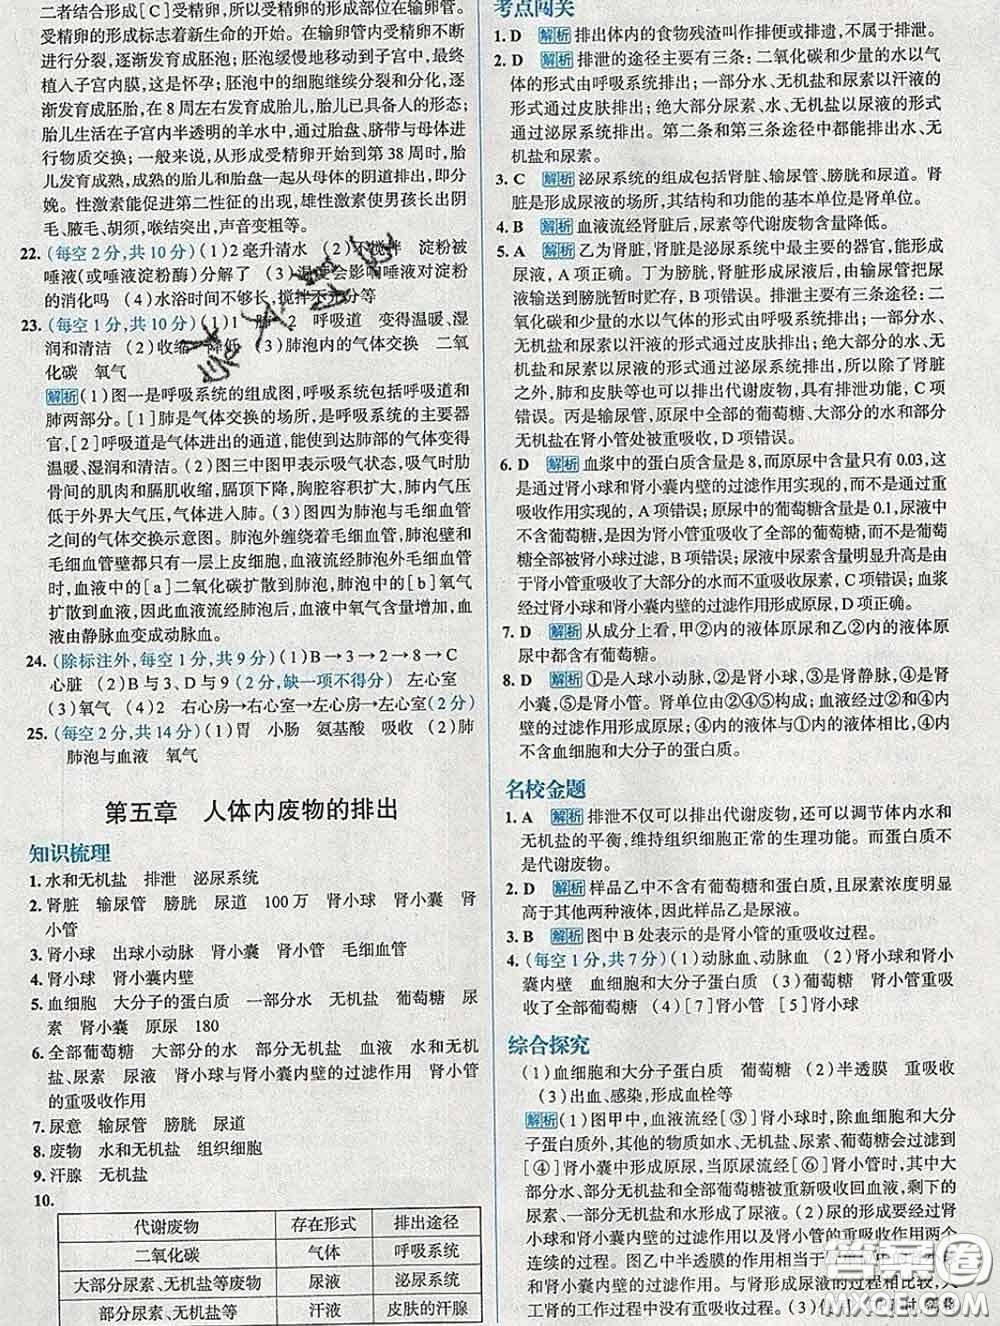 二者结合形成[C]受精卵,所以受精卵的形成部位在输卵管。
受精卵的形成标志着新生命的开始。在输卵管内受精卵不断
进行分裂,逐渐发育成胚泡;胚泡缓慢地移动到子宫中,最终
植入子宫内膜,这是怀孕;胚泡中的细胞继续分裂和分化,逐
渐发育成胚胎,在 8 周左右发育成胎儿,胎儿已具备人的形态;
胎儿生活在子宫内半透明的羊水中,通过胎盘、脐带与母体进
行物质交换;一般来说,从形成受精卵开始到第 38 周时,胎
儿发育成熟,成熟的胎儿和胎盘一起从母体的阴道排出,即分
娩。性激素能促进第二性征的出现,雄性激素使男孩长出阴
毛、腋毛、胡须,喉结突出,声音变粗等。
22. (每空 2 分,共 10 分)(1)2 毫升清水 (2)不搅拌 淀粉被
唾液(或唾液淀粉酶)分解了 (3)温度会影响唾液对淀粉
的消化吗 (4)水浴时间不够长,搅拌不充分等
23. (每空 1 分,共 10 分)(1)1 肺 2 呼吸道 变得温暖、湿
润和清洁 (2)收缩 降低 (3)肺泡内的气体交换 二氧
化碳 氧气
解析 (1)图一是呼吸系统的组成图,呼吸系统包括呼吸道和
肺两部分。[1]肺是气体交换的场所,是呼吸系统的主要器
官,[2]呼吸道是气体进出的通道,能使到达肺部的气体变得
温暖、湿润和清洁。(2)图三中图甲表示吸气状态,吸气时肋
骨间的肌肉和膈肌收缩,膈顶下降,胸腔容积扩大,肺内气压
低于外界大气压,气体进入肺。(3)图四为肺泡与毛细血管
之间的气体交换示意图。肺泡外缠绕着毛细血管,毛细血管壁
和毛细血管壁都只有一层上皮细胞,血液流经肺泡外毛细血管
时,血液中的[a]二氧化碳扩散到肺泡,肺泡中的[b]氧气
扩散到血液,因此血液流经肺泡后,血液中氧气含量增加,血
液由静脉血变成动脉血。
24. (除标注外,每空 1 分,共 9 分)(1)B→3→2→8→C
心脏 (2)B 与 3、D 与 9(2 分,缺一项不得分) 左心室
(3)氧气 (4)2 右心房→右心室→左心房→左心室(2 分)
25. (每空 2 分,共 14 分)(1)胃 小肠 氨基酸 吸收 (2)肺
肺泡与血液 氧气
第五章 人体内废物的排出
知识梳理
1. 水和无机盐 排泄 泌尿系统
2. 肾脏 输尿管 膀胱 尿道 100 万 肾小球 肾小囊 肾
小管
3. 肾小球 出球小动脉 肾小囊 肾小管 毛细血管
4. 肾小球 肾小囊内壁
5. 血细胞 大分子的蛋白质 一部分水 无机盐 葡萄糖 尿
素 肾小囊 原尿 180
6. 全部葡萄糖 大部分的水 部分无机盐 血液 水和无机
盐、尿素 尿液 肾小球与肾小囊内壁的过滤作用 肾小管
的重吸收作用
7. 尿意 输尿管 膀胱 尿道
8. 废物 水和无机盐 组织细胞
9. 汗腺 无机盐
10.
代谢废物 存在形式 排出途径
二氧化碳 气体 呼吸系统
大部分尿素、无机盐等废物 尿液 泌尿系统
部分尿素、无机盐等 汗液 皮肤的汗腺
考点闯关
1. D 解析 排出体内的食物残渣叫作排便或排遗,不属于排泄。
2. D 解析 排泄的途径主要有三条:二氧化碳和少量的水以气
体的形式由呼吸系统排出;一部分水、无机盐和尿素以汗液的
形式通过皮肤排出;绝大部分尿素、水、无机盐以尿液的形式
通过泌尿系统排出。第二条和第三条途径中都能排出水、无
机盐和尿素。
3. C 解析 泌尿系统的组成包括肾脏、输尿管、膀胱和尿道。肾
脏是形成尿液的场所,其结构和功能的基本单位是肾单位。
4. B 解析 血液流经肾脏后,尿素等代谢废物含量降低。
5. A 解析 乙为肾脏,肾脏是泌尿系统中最主要的器官,能形成
尿液,A 项正确。丁为膀胱,肾脏形成尿液后,由输尿管把尿
液输送到膀胱暂时贮存,B 项错误。排泄主要有三条途径:二
氧化碳和少量的水以气体的形式由呼吸系统排出;一部分水、
无机盐和尿素以汗液的形式由皮肤排出;绝大部分的水、无机
盐和尿素以尿液的形式通过泌尿系统排出。所以除了肾脏
之外,肺和皮肤等也可以排出代谢废物,具有排泄功能,C 项
错误。丙是输尿管,原尿中全部的葡萄糖、大部分的水和部分
无机盐在肾小管处被重吸收,D 项错误。
6. D 解析 血浆中的蛋白质含量是 8,而原尿中含量只有 0.03,这
是通过肾小球和肾小囊内壁的过滤作用实现的,而不是通过重
吸收作用实现的,A 项错误;原尿中的葡萄糖含量是 0.1,尿液中
不含葡萄糖,是因为肾小管重吸收了全部的葡萄糖,而不是葡萄
糖全部被肾小球过滤,B 项错误;尿液中尿素含量明显升高是由
于肾小管重吸收了大部分的水而不重吸收尿素,C 项错误;血浆
经过肾小球和肾小囊内壁的过滤作用形成原尿,D 项正确。
7. D 解析 从成分上看,甲②内的液体原尿和乙②内的液体原
尿中都含有葡萄糖。
8. D 解析 ①是入球小动脉,②是肾小球,③是肾静脉,④是肾
小囊,⑤是肾小管。肾单位由②④⑤构成;血液经过②和④内
壁的过滤作用形成原尿;④内的液体与①内的液体相比,④内
不含血细胞和大分子的蛋白质。
名校金题
1. A 解析 排泄不仅可以排出代谢废物,还可以调节体内水和
无机盐的平衡,维持组织细胞正常的生理功能。而蛋白质不
是代谢废物。
2. D 解析 样品乙中不含有葡萄糖和蛋白质,且尿素浓度明显
高于其他两种液体,因此样品乙是尿液。
3. B 解析 图中 B 处表示的是肾小管的重吸收过程。
4. (每空 1 分,共 7 分)(1)动脉血、动脉血 (2)肾小球和肾小
囊内壁 血细胞和大分子的蛋白质 (3)葡萄糖 肾小管重吸
收了全部葡萄糖 (4)[7]肾小管 [5]肾小球
综合探究
(1)血细胞和大分子蛋白质 葡萄糖 (2)半透膜 重吸收
(3)出血、感染,形成血栓等
解析 (1)图甲中,血液流经[③]肾小球时,除血细胞和大分
子蛋白质外,其他的物质如水、无机盐、尿素、葡萄糖会过滤到
[④]肾小囊中形成原尿,当原尿流经[⑥]肾小管时,其中大
部分水、部分无机盐和全部葡萄糖被重新吸收回血液,剩下的
尿素、一部分无机盐和水形成了尿液。(2)尿的形成要经过肾
小球和肾小囊内壁的过滤作用以及肾小管的重吸收作用两个
连续的过程。图乙中半透膜的作用相当于
和肾小囊内壁的过滤作用。与肾形成尿液的过程相比较,人
工肾的工作过程中没有重吸收过程。(3)
答案圈
MXQE.COM